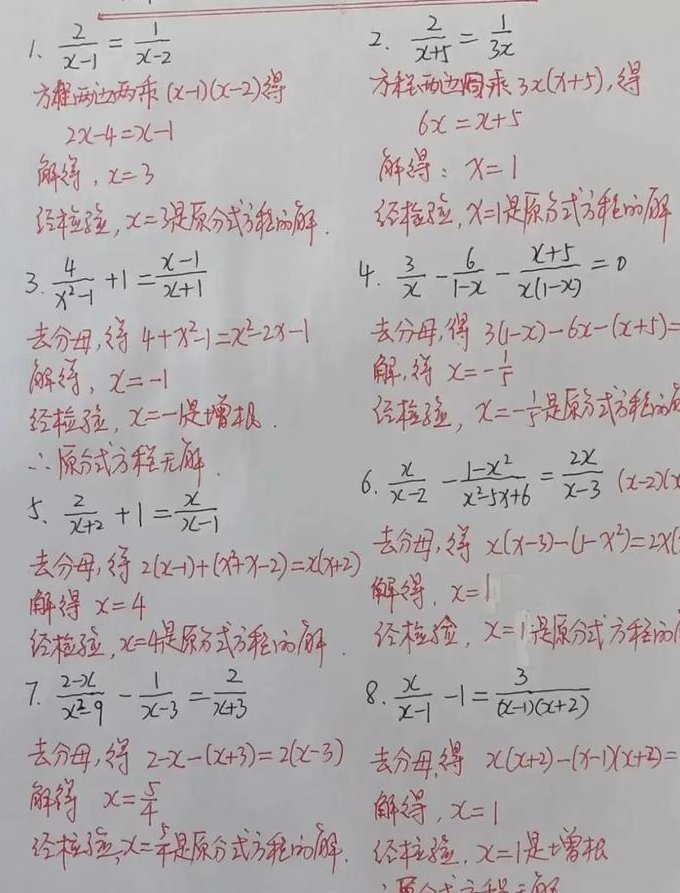 1. 2/(x-1) = 1/(x-2)
方程两边同乘 (x-1)(x-2)得
2x-4=x-1
解得, x=3
经检验, x=3是原分式方程的解.
2. 2/(x+5) = 1/(3x)
方程两边同乘 3x(x+5), 得
6x=x+5
解得: x=1
经检验, x=1是原分式方程的解
3. 4/(x²-1) +1 = (x-1)/(x+1)
去分母, 得 4+x²-1=x²-2x-1
解得, x=-1
经检验, x=-1是增根.
∴原分式方程无解.
4. 3/x - 6/(1-x) - (x+5)/(x(1-x)) = 0
去分母, 得 3(1-x)-6x-(x+5)=
解, 得 x=-1/5
经检验, x=-1/5是原分式方程的
5. 2/(x+2) +1 = x/(x-1)
去分母, 得 2(x-1)+(x²+x-2)=x(x+2)
解得 x=4
经检验, x=4是原分式方程的解.
6. x/(x-2) - (1-x²)/(x²-5x+6) = 2x/(x-3) (x-2)(x
去分母, 得 x(x-3)-(1-x²)=2x(
解得, x=1
经检验, x=1是原分式方程的
7. (2-x)/(x²-9) - 1/(x-3) = 2/(x+3)
去分母, 得 2-x-(x+3)=2(x-3)
解得 x=5/4
经检验, x=5/4是原分式方程的解.
8. x/(x-1) -1 = 3/((x-1)(x+2))
去分母, 得 x(x+2)-(x-1)(x+2)=
解得, x=1
经检验, x=1是增根
∴原分式方程无解